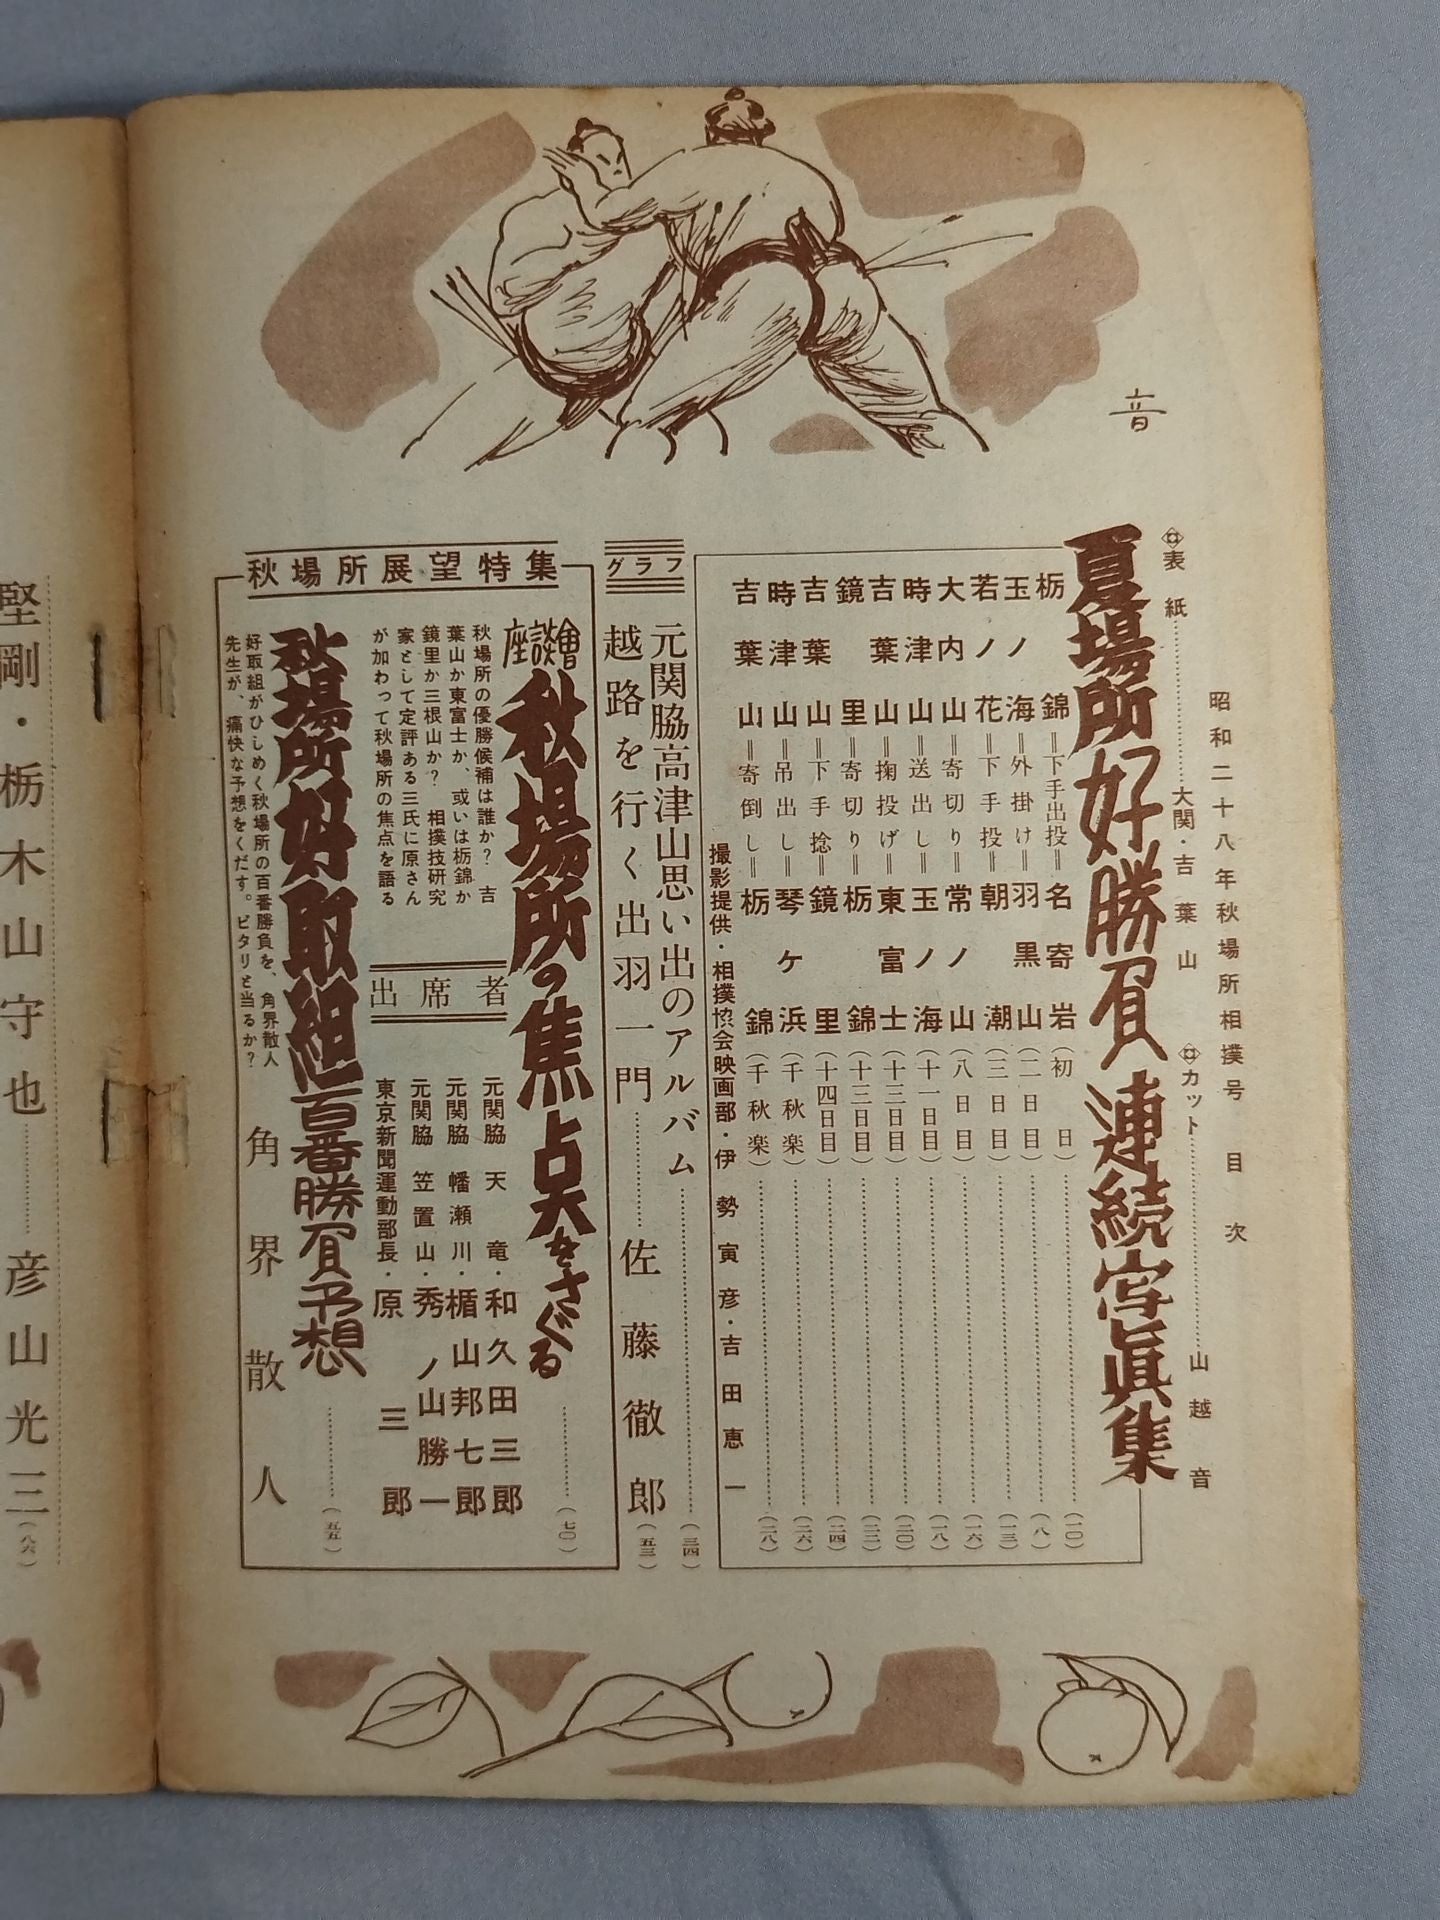 音
昭和二十八年秋場所相撲号 目次
表紙……大関・吉葉山
カット……山越音
夏場所好勝負連続写眞集
栃錦=下手出投=名寄岩(初日)……(一〇)
玉ノ海=外掛け=羽黒山(二日目)……(八)
若ノ花=下手投=朝潮(三日目)……(一三)
大内山=寄切り=常ノ山(八日目)……(一六)
時津山=送出し=玉ノ海(十一日目)……(一八)
吉葉山=掬投げ=東富士(十三日目)……(二〇)
鏡里=寄切り=栃錦(十三日目)……(二二)
吉葉山=下手捻=鏡里(十四日目)……(二四)
時津山=吊出し=琴ケ浜(千秋楽)……(二六)
吉葉山=寄倒し=栃錦(千秋楽)……(二八)
撮影提供・相撲協会映画部・伊勢寅彦・吉田恵一
グラフ
元関脇高津山思い出のアルバム……(三四)
越路を行く出羽一門……佐藤徹郎(五三)
秋場所展望特集
座談會
秋場所の焦点をさぐる……(七〇)
秋場所の優勝候補は誰か? 吉
葉山か東富士か、或いは栃錦か
鏡里か三根山か? 相撲技研究
家として定評ある三氏に原さん
が加わって秋場所の焦点を語る
出席者
元関脇 天竜・和久田三郎
元関脇 幡瀬川・楯山邦七郎
元関脇 笠置山・秀ノ山勝一
東京新聞運動部長・原三郎
秋場所好取組百番勝負予想……(五五)
好取組がひしめく秋場所の百番勝負を、角界散人
先生が、痛快な予想をくだす。ピタリと当るか?
角界散人
堅剛・栃木山守也……彦山光三(八六)